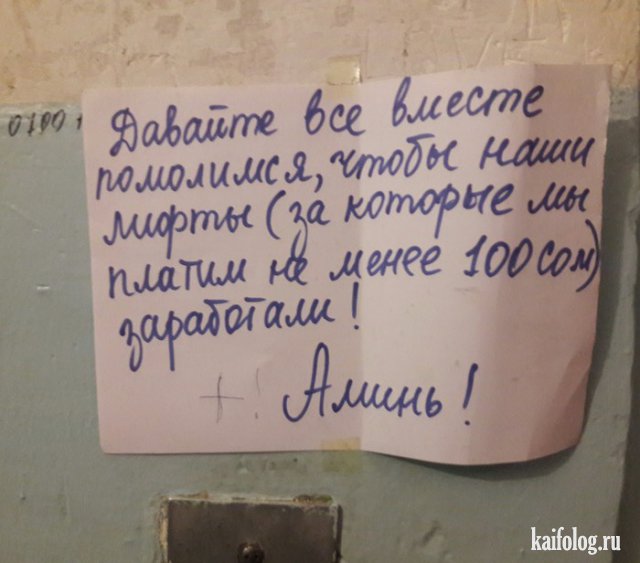 Давайте все вместе
помолимся, чтобы наши
лифты (за которые мы
платим не менее 100 сом)
заработали!
+! Аминь!
kaifolog.ru